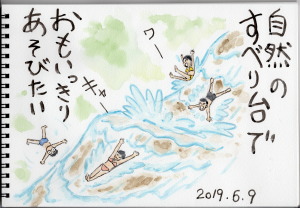 自然の
すべり台で
ワー
キャー
おもいっきり
あそびたい
2019.6.9